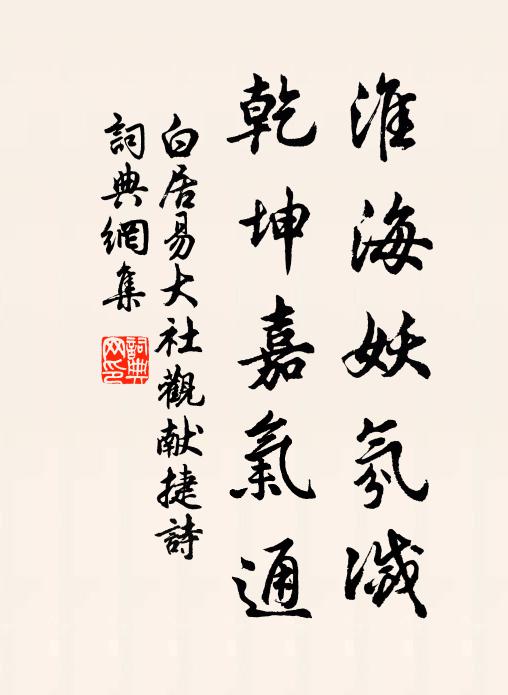 淮海妖氛滅
乾坤嘉氣通
白居易大社觀献捷詩
詞典網集
詞典網印